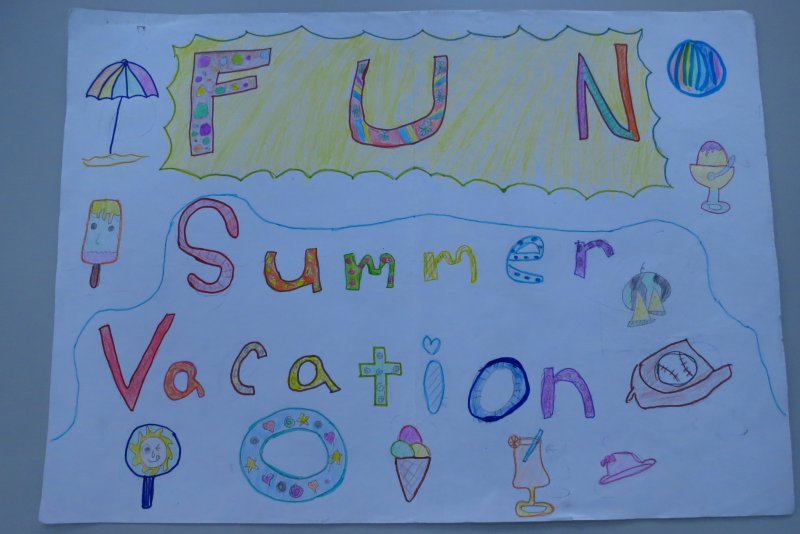 FUN
Summer
Vacation